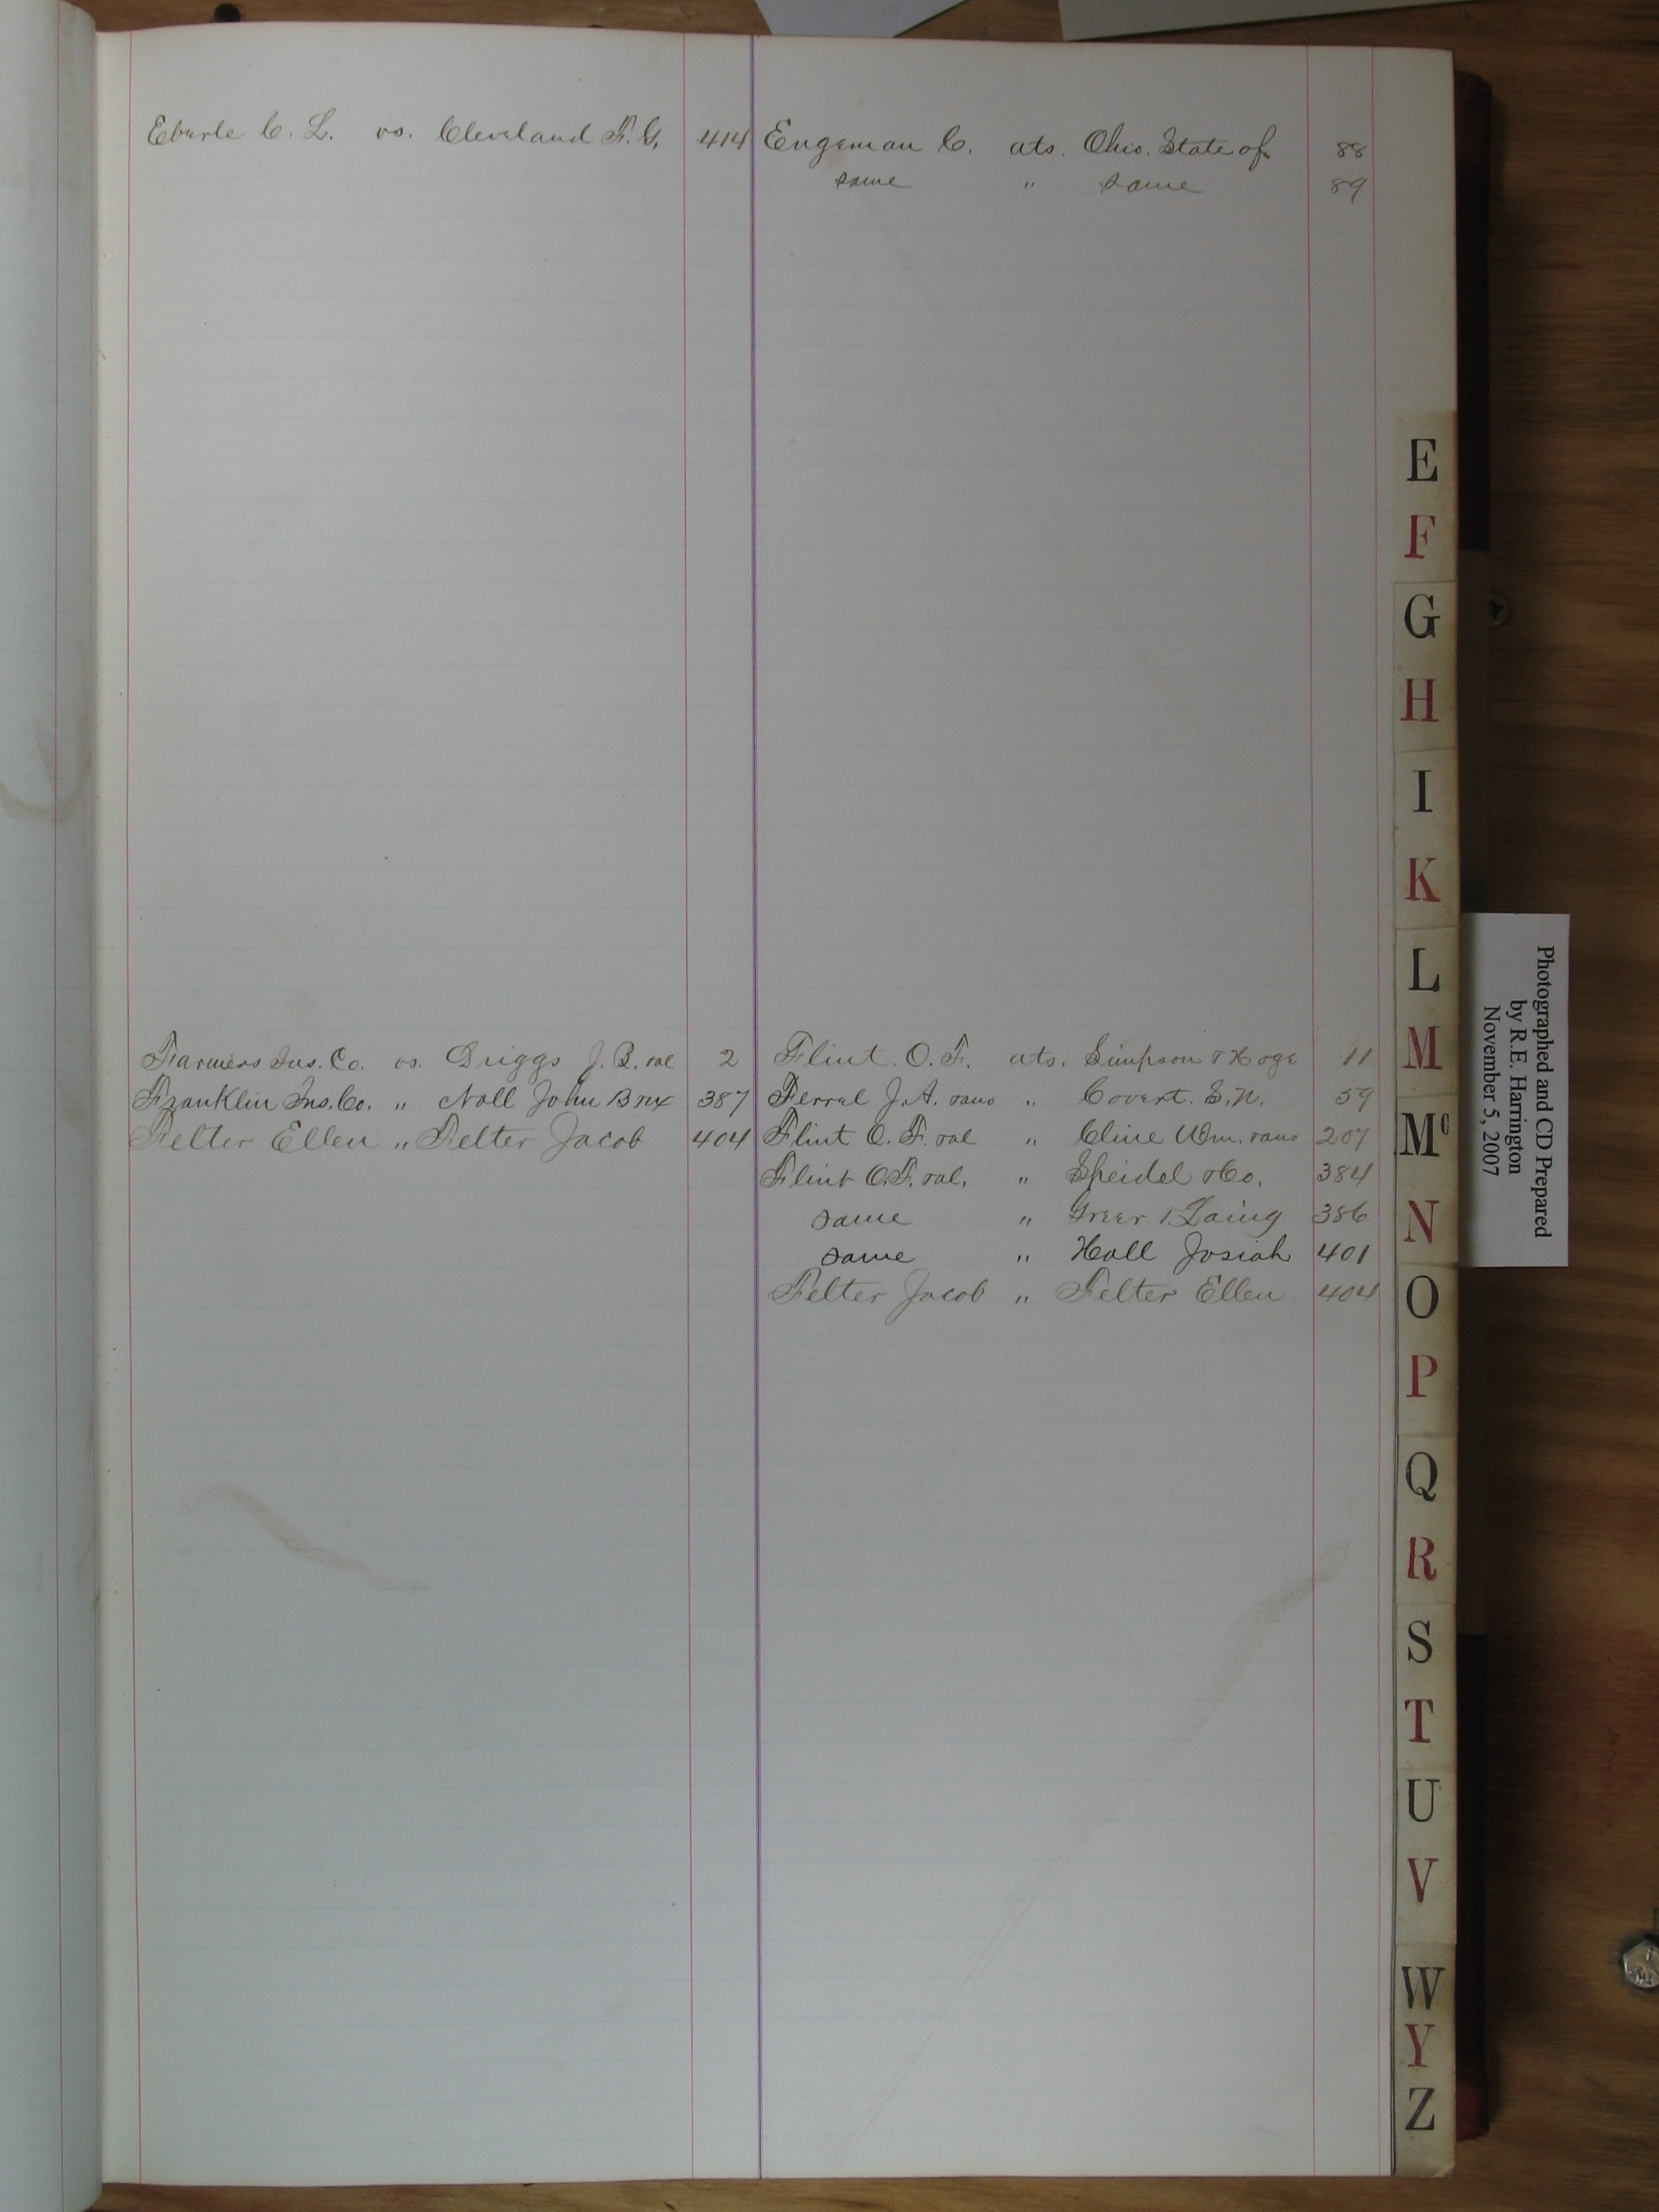 Eberle C. L. vs. Cleveland F. G. 414
Farmers Ins. Co. vs. Driggs J. B. 2
Franklin Ins. Co. " Noll John B 387
Felter Ellen " Felter Jacob 404
Engeman C. ats. Ohio. State of 88
same " same 89
Flint. O. F. ats. Simpson & Hoge 11
Ferral J. A. " Covert. S. N. 59
Flint O. F. " Cline Wm. 207
Flint O. F. " Speidel & Co. 384
same " Greer & Laing 386
same " Hall Josiah 401
Felter Jacob " Felter Ellen 404
E
F
G
H
I
K
L
M
Mc
N
O
P
Q
R
S
T
U
V
W
Y
Z
Photographed and CD Prepared
by R.E. Harrington
November 5, 2007